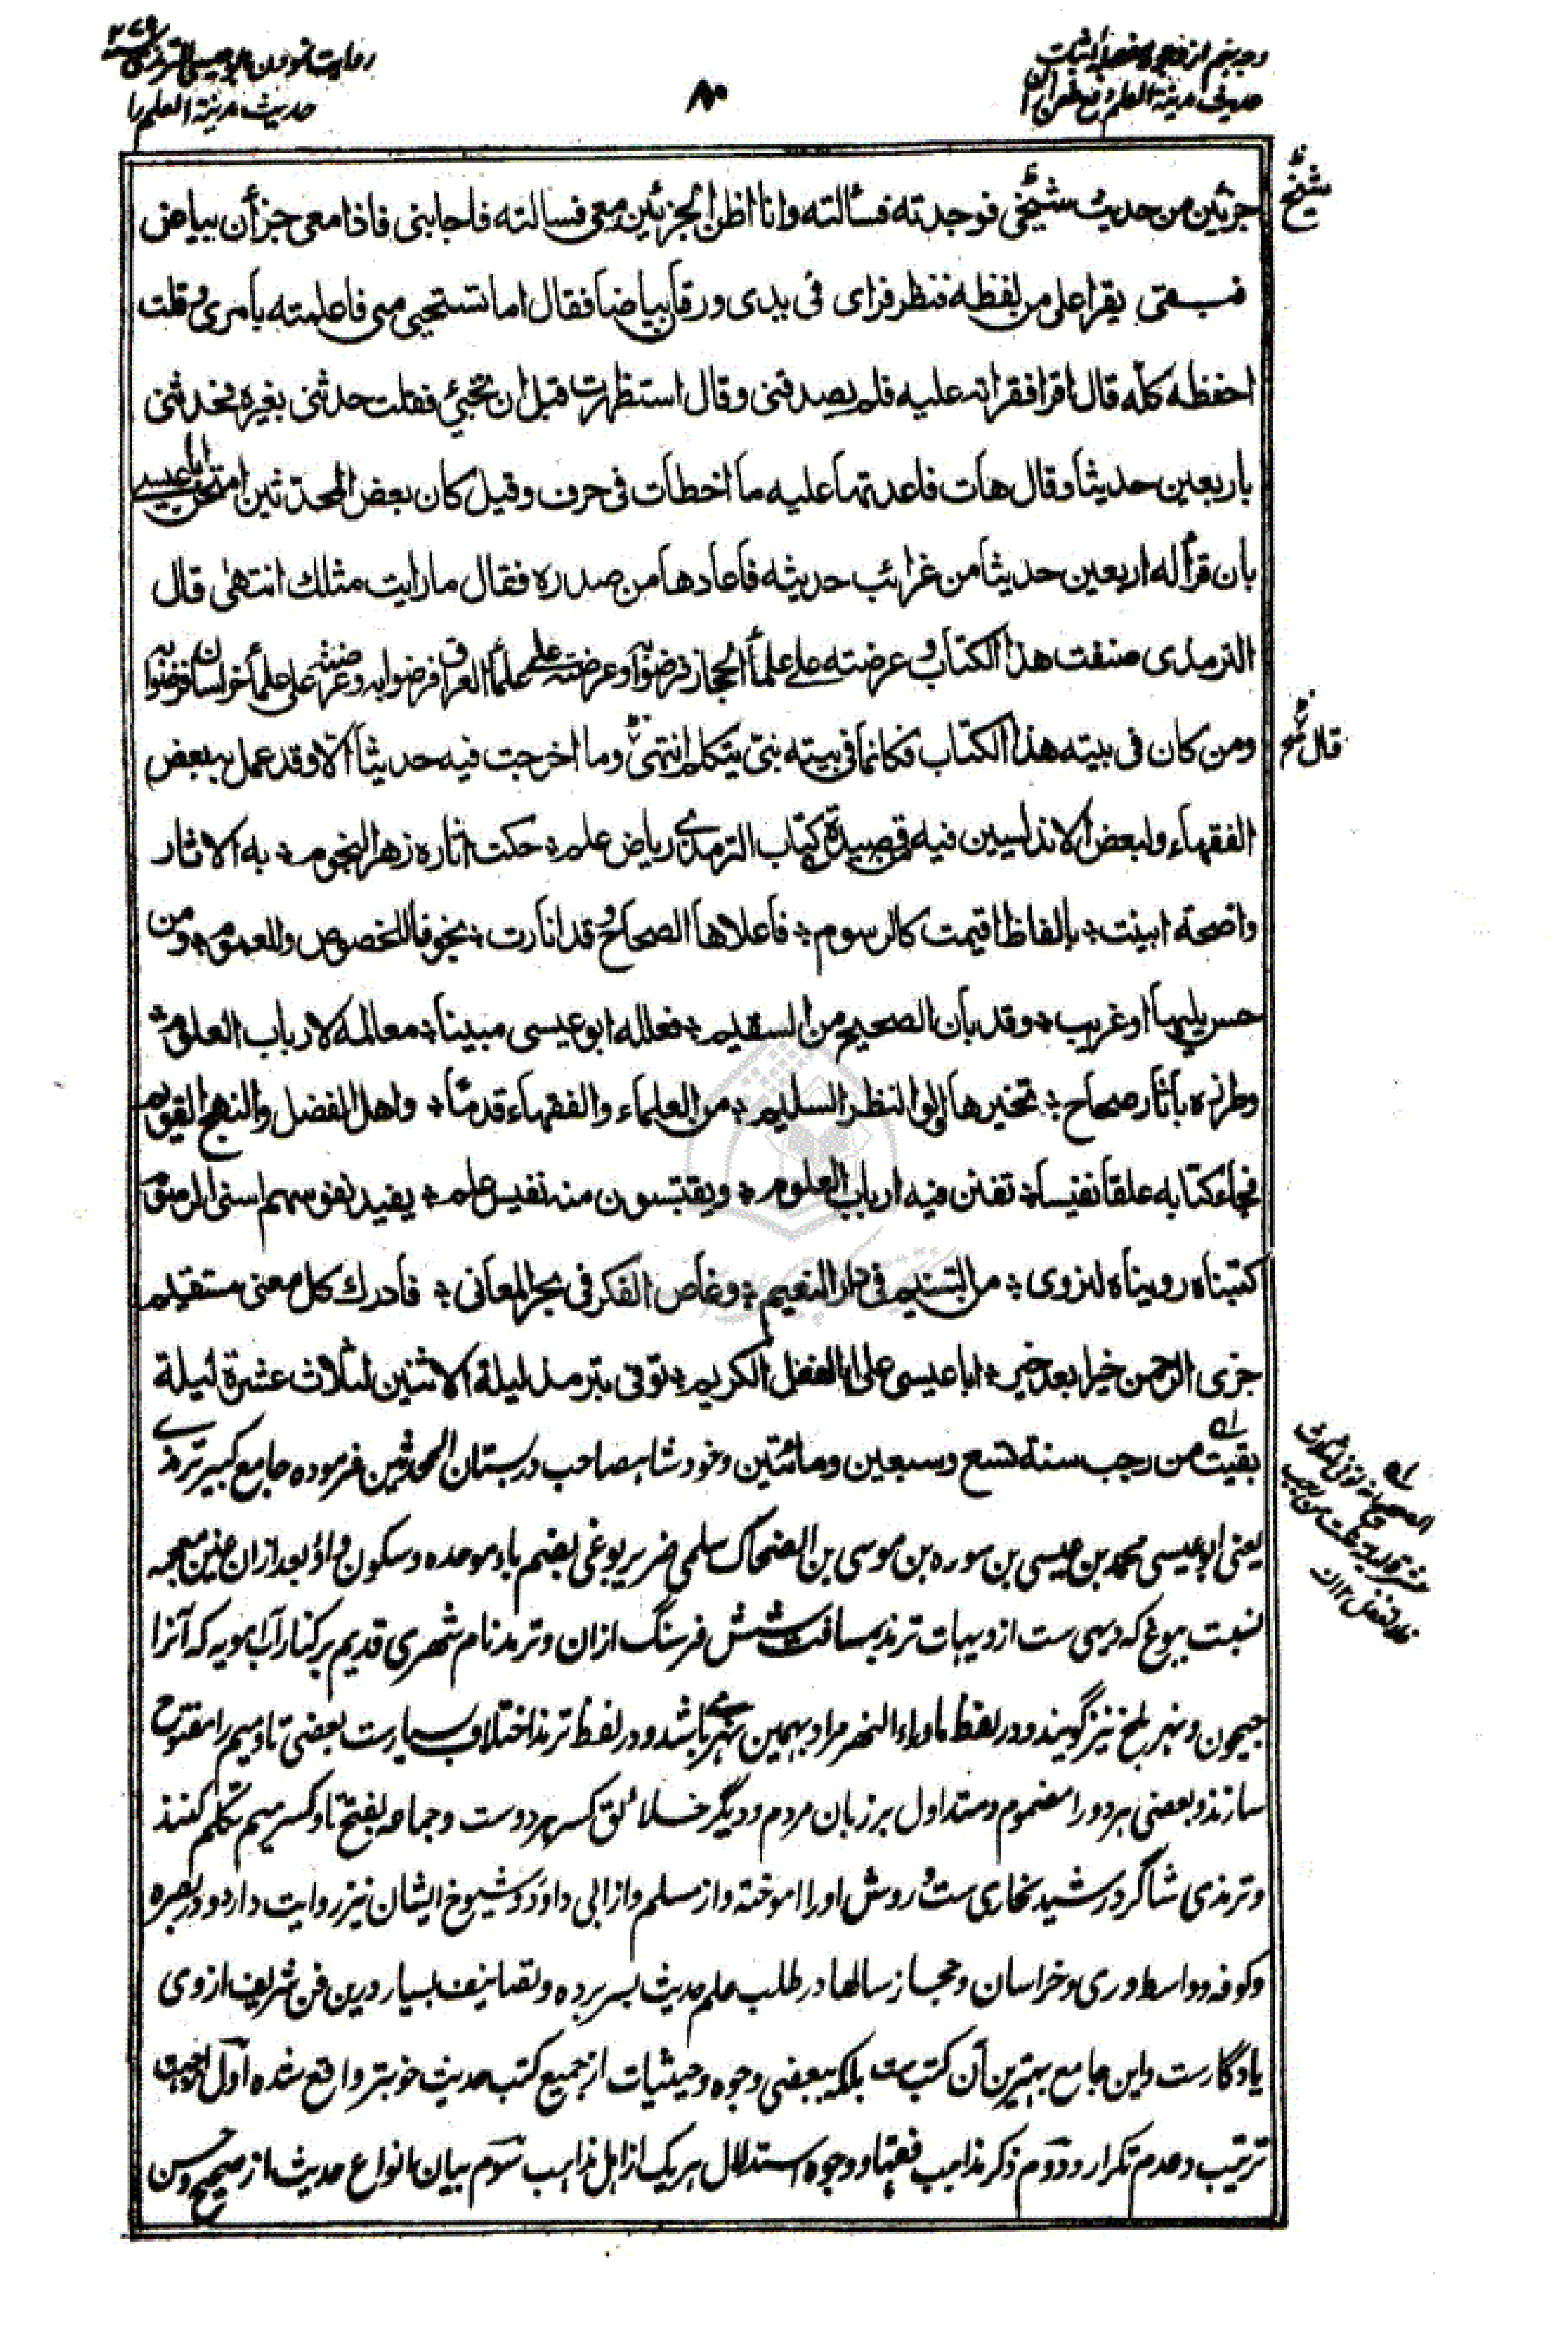 وجه پنجم از وجوه مفصله اثبات
حدیث مدینة العلم
۸۰
روایت نمودن ابو عیسی الترمذی
حدیث مدینة العلم را
جزئین من حدیث شیخی فوجدته فسألته وانا اظن الجزئین معی فسالته فاجابنی فاذا معی جزأن بیاض
شیخ
یقرا علی من لفظه فنظر فرای فی یدی ورقا بیاضا فقال اما تستحیی منی فاعلمته بامری وقلت
احفظه کله قال اقرا فقراته علیه فلم یصدقنی وقال استظهرت قبل ان تجیئ فقلت حدثنی بغیره فحدثنی
باربعین حدیثا وقال هات فاعدتها علیه ما اخطات فی حرف وقیل کان بعض المحدثین امتحن ابا عیسی
بان قرأ له اربعین حدیثا من غرائب حدیثه فاعادها من صدره فقال ما رایت مثلك انتهی قال
الترمذی صنفت هذا الکتاب وعرضته علی علماء الحجاز فرضوا به وعرضته علی علماء العراق فرضوا به وعرضته علی علماء خراسان فرضوا به
ومن کان فی بیته هذا الکتاب فکانما فی بیته نبی یتکلم انتهی وما اخرجت فیه حدیثا الا وقد عمل به بعض
قال
الفقهاء ولبعض الاندلسیین فیه قصیدة کتاب الترمذی ریاض علم ؛ حکت اثاره زهر النجوم ؛ به الاثار
واضحة ابینت ؛ بالفاظ اقیمت کالرسوم ؛ فاعلاها الصحاح وقد انارت ؛ نجوما للخصوص وللعموم ؛ ومن
حسن یلیها او غریب ؛ وقد بان الصحیح من السقیم ؛ فعلله ابو عیسی مبینا ؛ معالمه لارباب العلوم ؛
وطرزه باثار صحاح ؛ تخیرها اولو النظر السلیم ؛ من العلماء والفقهاء قدما ؛ واهل الفضل والنهج القویم
فجاء کتابه علقا نفیسا ؛ تفنن فیه ارباب العلوم ؛ ویقتبسون منه نفیس علم ؛ یفید نفوسهم اسنی الرسوم
کتبناه رویناه لنروی ؛ من التسنیم فی دار النعیم ؛ وغاص الفکر فی بحر المعانی ؛ فادرك کل معنی مستقیم
جزی الرحمن خیرا بعد خیر ؛ ابا عیسی علی الفعل الکریم ؛ توفی بترمذ لیلة الاثنین لثلاث عشرة لیلة
بقیت من رجب سنة تسع وسبعین ومائتین وخود شاهصاحب در بستان المحدثین فرموده جامع کبیر ترمذی
یعنی ابو عیسی محمد بن عیسی بن سوره بن موسی بن الضحاک سلمی ضریر بوغی بضم باء موحده و سکون واو بعد ازان غین معجمه
نسبت ببوغ که دیهی ست از دیهات ترمذ بمسافت شش فرسنگ ازان و ترمذ نام شهری قدیم بر کنار آب امویه که آنرا
جیحون و نهر بلخ نیز گویند و در لفظ ماوراء النهر مراد بهمین نهر باشد و در لفظ ترمذ اختلاف بسیارست بعضی تا و میم را مفتوح
سازند و بعضی هر دو را مضموم و متداول بر زبان مردم و دیگر خلائق کسر هر دوست و جماعه بفتح تا و کسر میم تکلم کنند
و ترمذی شاگرد رشید بخاری ست و روش او را اموخته و از مسلم و از ابی داود و شیوخ ایشان نیز روایت دارد و در بصره
و کوفه و واسط و ری و خراسان و حجاز سالها در طلب علم حدیث بسر برده و تصانیف بسیار درین فن شریف از وی
یادگارست و این جامع بهترین آن کتب ست بلکه ببعضی وجوه و حیثیات از جمیع کتب حدیث خوبتر واقع شده اول از جهت
ترتیب و عدم تکرار و دوم ذکر مذاهب فقها و وجوه استدلال هر یک از اهل مذاهب سوم بیان انواع حدیث از صحیح و حسن